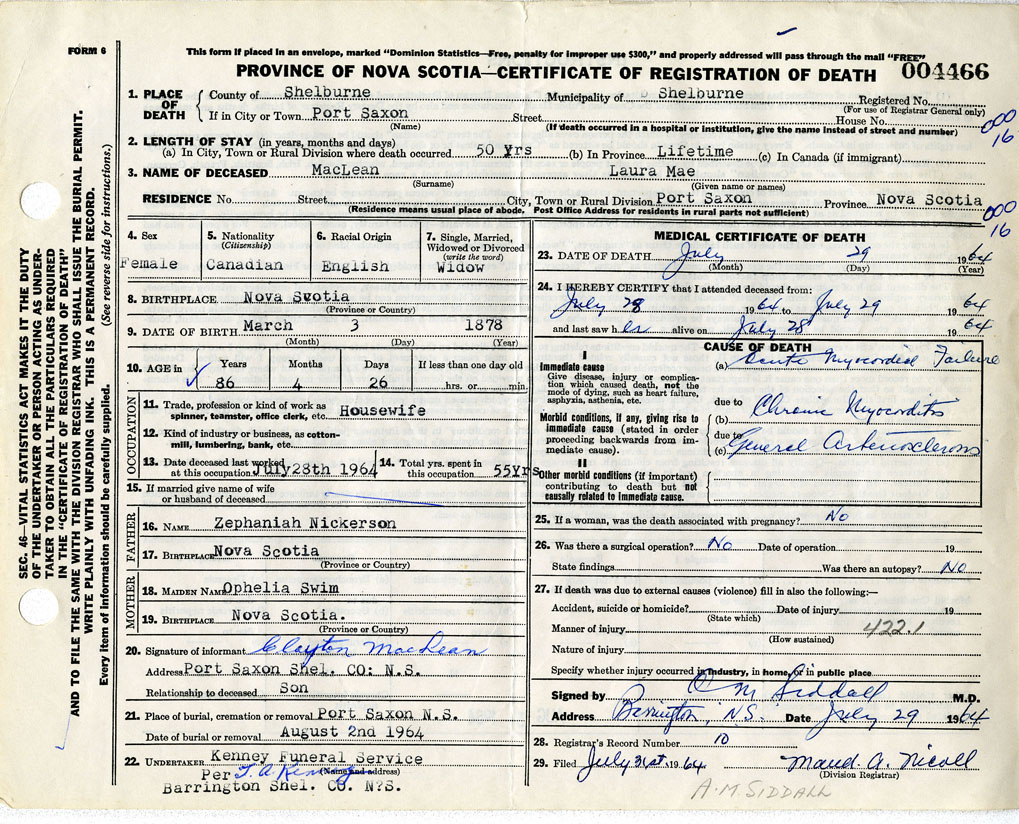 FORM 6
This form if placed in an envelope, marked "Dominion Statistics—Free, penalty for improper use $300," and properly addressed will pass through the mail "FREE"
PROVINCE OF NOVA SCOTIA—CERTIFICATE OF REGISTRATION OF DEATH 004466
1. PLACE OF DEATH
County of Shelburne Municipality of Shelburne Registered No.
(For use of Registrar General only)
If in City or Town Port Saxon Street House No.
(Name) (If death occurred in a hospital or institution, give the name instead of street and number)
000
16
2. LENGTH OF STAY (in years, months and days)
(a) In City, Town or Rural Division where death occurred 50 Yrs (b) In Province Lifetime (c) In Canada (if immigrant)
3. NAME OF DECEASED MacLean Laura Mae
(Surname) (Given name or names)
RESIDENCE No. Street City, Town or Rural Division Port Saxon Province Nova Scotia
(Residence means usual place of abode. Post Office Address for residents in rural parts not sufficient)
000
16
4. Sex
Female
5. Nationality
(Citizenship)
Canadian
6. Racial Origin
English
7. Single, Married, Widowed or Divorced
(write the word)
Widow
8. BIRTHPLACE Nova Scotia
(Province or Country)
9. DATE OF BIRTH March 3 1878
(Month) (Day) (Year)
10. AGE in
Years Months Days If less than one day old
86 4 26 hrs. or min.
OCCUPATION
11. Trade, profession or kind of work as spinner, teamster, office clerk, etc. Housewife
12. Kind of industry or business, as cotton-mill, lumbering, bank, etc.
13. Date deceased last worked at this occupation July 28th 1964
14. Total yrs. spent in this occupation 55Yrs
15. If married give name of wife or husband of deceased
FATHER
16. NAME Zephaniah Nickerson
17. BIRTHPLACE Nova Scotia
(Province or Country)
MOTHER
18. MAIDEN NAME Ophelia Swim
19. BIRTHPLACE Nova Scotia.
(Province or Country)
20. Signature of informant Clayton MacLean
Address Port Saxon Shel. CO: N.S.
Relationship to deceased Son
21. Place of burial, cremation or removal Port Saxon N.S.
Date of burial or removal August 2nd 1964
22. UNDERTAKER Kenney Funeral Service
(Name and address)
Per
Barrington Shel. CO. N?S.
MEDICAL CERTIFICATE OF DEATH
23. DATE OF DEATH July 29 1964
(Month) (Day) (Year)
24. I HEREBY CERTIFY that I attended deceased from:
July 28 1964 to July 29 1964
and last saw her alive on July 28 1964
CAUSE OF DEATH
I
Immediate cause
Give disease, injury or complication which caused death, not the mode of dying, such as heart failure, asphyxia, asthenia, etc.
(a) Acute Myocordial Failure
due to
Morbid conditions, if any, giving rise to immediate cause (stated in order proceeding backwards from immediate cause).
(b) Chronic Myocorditis
due to
(c) General Arteriosclerosis
II
Other morbid conditions (if important) contributing to death but not causally related to immediate cause.
25. If a woman, was the death associated with pregnancy? No
26. Was there a surgical operation? No Date of operation 19
State findings Was there an autopsy? No
27. If death was due to external causes (violence) fill in also the following:—
Accident, suicide or homicide? Date of injury 19
(State which)
Manner of injury 422.1
(How sustained)
Nature of injury
Specify whether injury occurred in industry, in home, or in public place
Signed by A M Siddall M.D.
Address Barrington, N.S. Date July 29 1964
28. Registrar's Record Number 10
29. Filed July 31st 1964 Maud A. Nicoll
(Division Registrar)
A.M. SIDDALL
SEC. 46—VITAL STATISTICS ACT MAKES IT THE DUTY
OF THE UNDERTAKER OR PERSON ACTING AS UNDER-
TAKER TO OBTAIN ALL THE PARTICULARS REQUIRED
IN THE "CERTIFICATE OF REGISTRATION OF DEATH"
AND TO FILE THE SAME WITH THE DIVISION REGISTRAR WHO SHALL ISSUE THE BURIAL PERMIT.
WRITE PLAINLY WITH UNFADING INK. THIS IS A PERMANENT RECORD.
Every item of information should be carefully supplied. (See reverse side for instructions.)